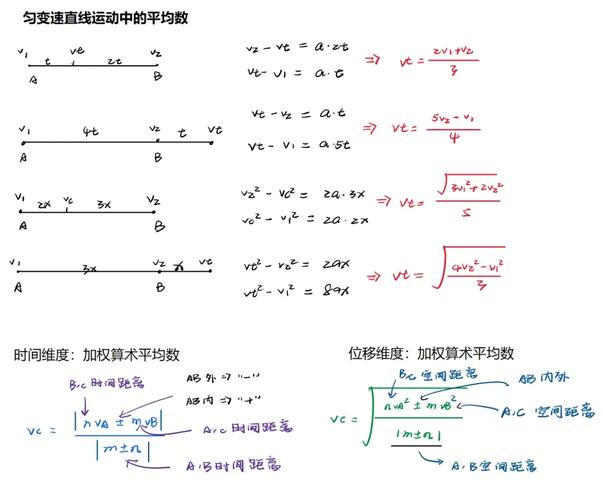 匀变速直线运动中的平均数
v₁ ve v₂
t 2t
A B
v₂ - vt = a·2t
vt - v₁ = a·t
⇒ vt = (2v₁+v₂)/3
v₁ 4t v₂ t vt
A B
vt - v₂ = a·t
vt - v₁ = a·5t
⇒ vt = (5v₂ - v₁)/4
v₁ 2x vc 3x v₂
A B
v₂² - vc² = 2a·3x
vc² - v₁² = 2a·2x
⇒ vt = √(3v₁²+2v₂²)/5
v₁ 3x v₂ x vt
A B
vt² - v₂² = 2ax
vt² - v₁² = 8ax
⇒ vt = √((4v₂²-v₁²)/3)
时间维度：加权算术平均数
B,c 时间距离
AB 外 ⇒ "-"
AB 内 ⇒ "+"
vc = |nvA ± mvB| / |m±n|
A,c 时间距离
A,B 时间距离
位移维度：加权算术平均数
B,c 空间距离
AB 内外
vc = √((nvA² ± mvB²)/|m±n|)
A,C 空间距离
A,B 空间距离